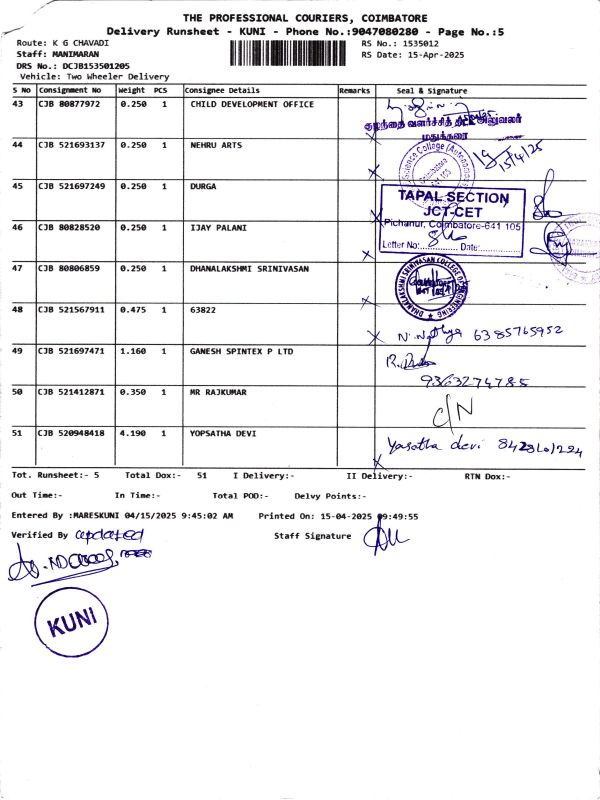 THE PROFESSIONAL COURIERS, COIMBATORE
Delivery Runsheet - KUNI - Phone No.:9047080280 - Page No.:5
Route: K G CHAVADI
RS No.: 1535012
Staff: MANIMARAN
RS Date: 15-Apr-2025
DRS No.: DCJB153501205
Vehicle: Two Wheeler Delivery
S No Consignment No Weight PCS Consignee Details Remarks Seal & Signature
43 CJB 80877972 0.250 1 CHILD DEVELOPMENT OFFICE
குழந்தை வளர்ச்சித் திட்ட அலுவலர்
மதுக்கரை
44 CJB 521693137 0.250 1 NEHRU ARTS
Science College (Autonomous)
15/4/25
45 CJB 521697249 0.250 1 DURGA
TAPAL SECTION
JCT-CET
Pichanur, Coimbatore-641 105
Letter No: Date:
46 CJB 80828520 0.250 1 IJAY PALANI
47 CJB 80806859 0.250 1 DHANALAKSHMI SRINIVASAN
DHANALAKSHMI SRINIVASAN COLLEGE OF ENGINEERING
48 CJB 521567911 0.475 1 63822
6385765952
49 CJB 521697471 1.160 1 GANESH SPINTEX P LTD
9363274785
50 CJB 521412871 0.350 1 MR RAJKUMAR
C/N
51 CJB 520948418 4.190 1 YOPSATHA DEVI
Yasatha devi
Tot. Runsheet:- 5 Total Dox:- 51 I Delivery:- II Delivery:- RTN Dox:-
Out Time:- In Time:- Total POD:- Delvy Points:-
Entered By :MARESKUNI 04/15/2025 9:45:02 AM Printed On: 15-04-2025 09:49:55
Verified By updated Staff Signature
KUNI